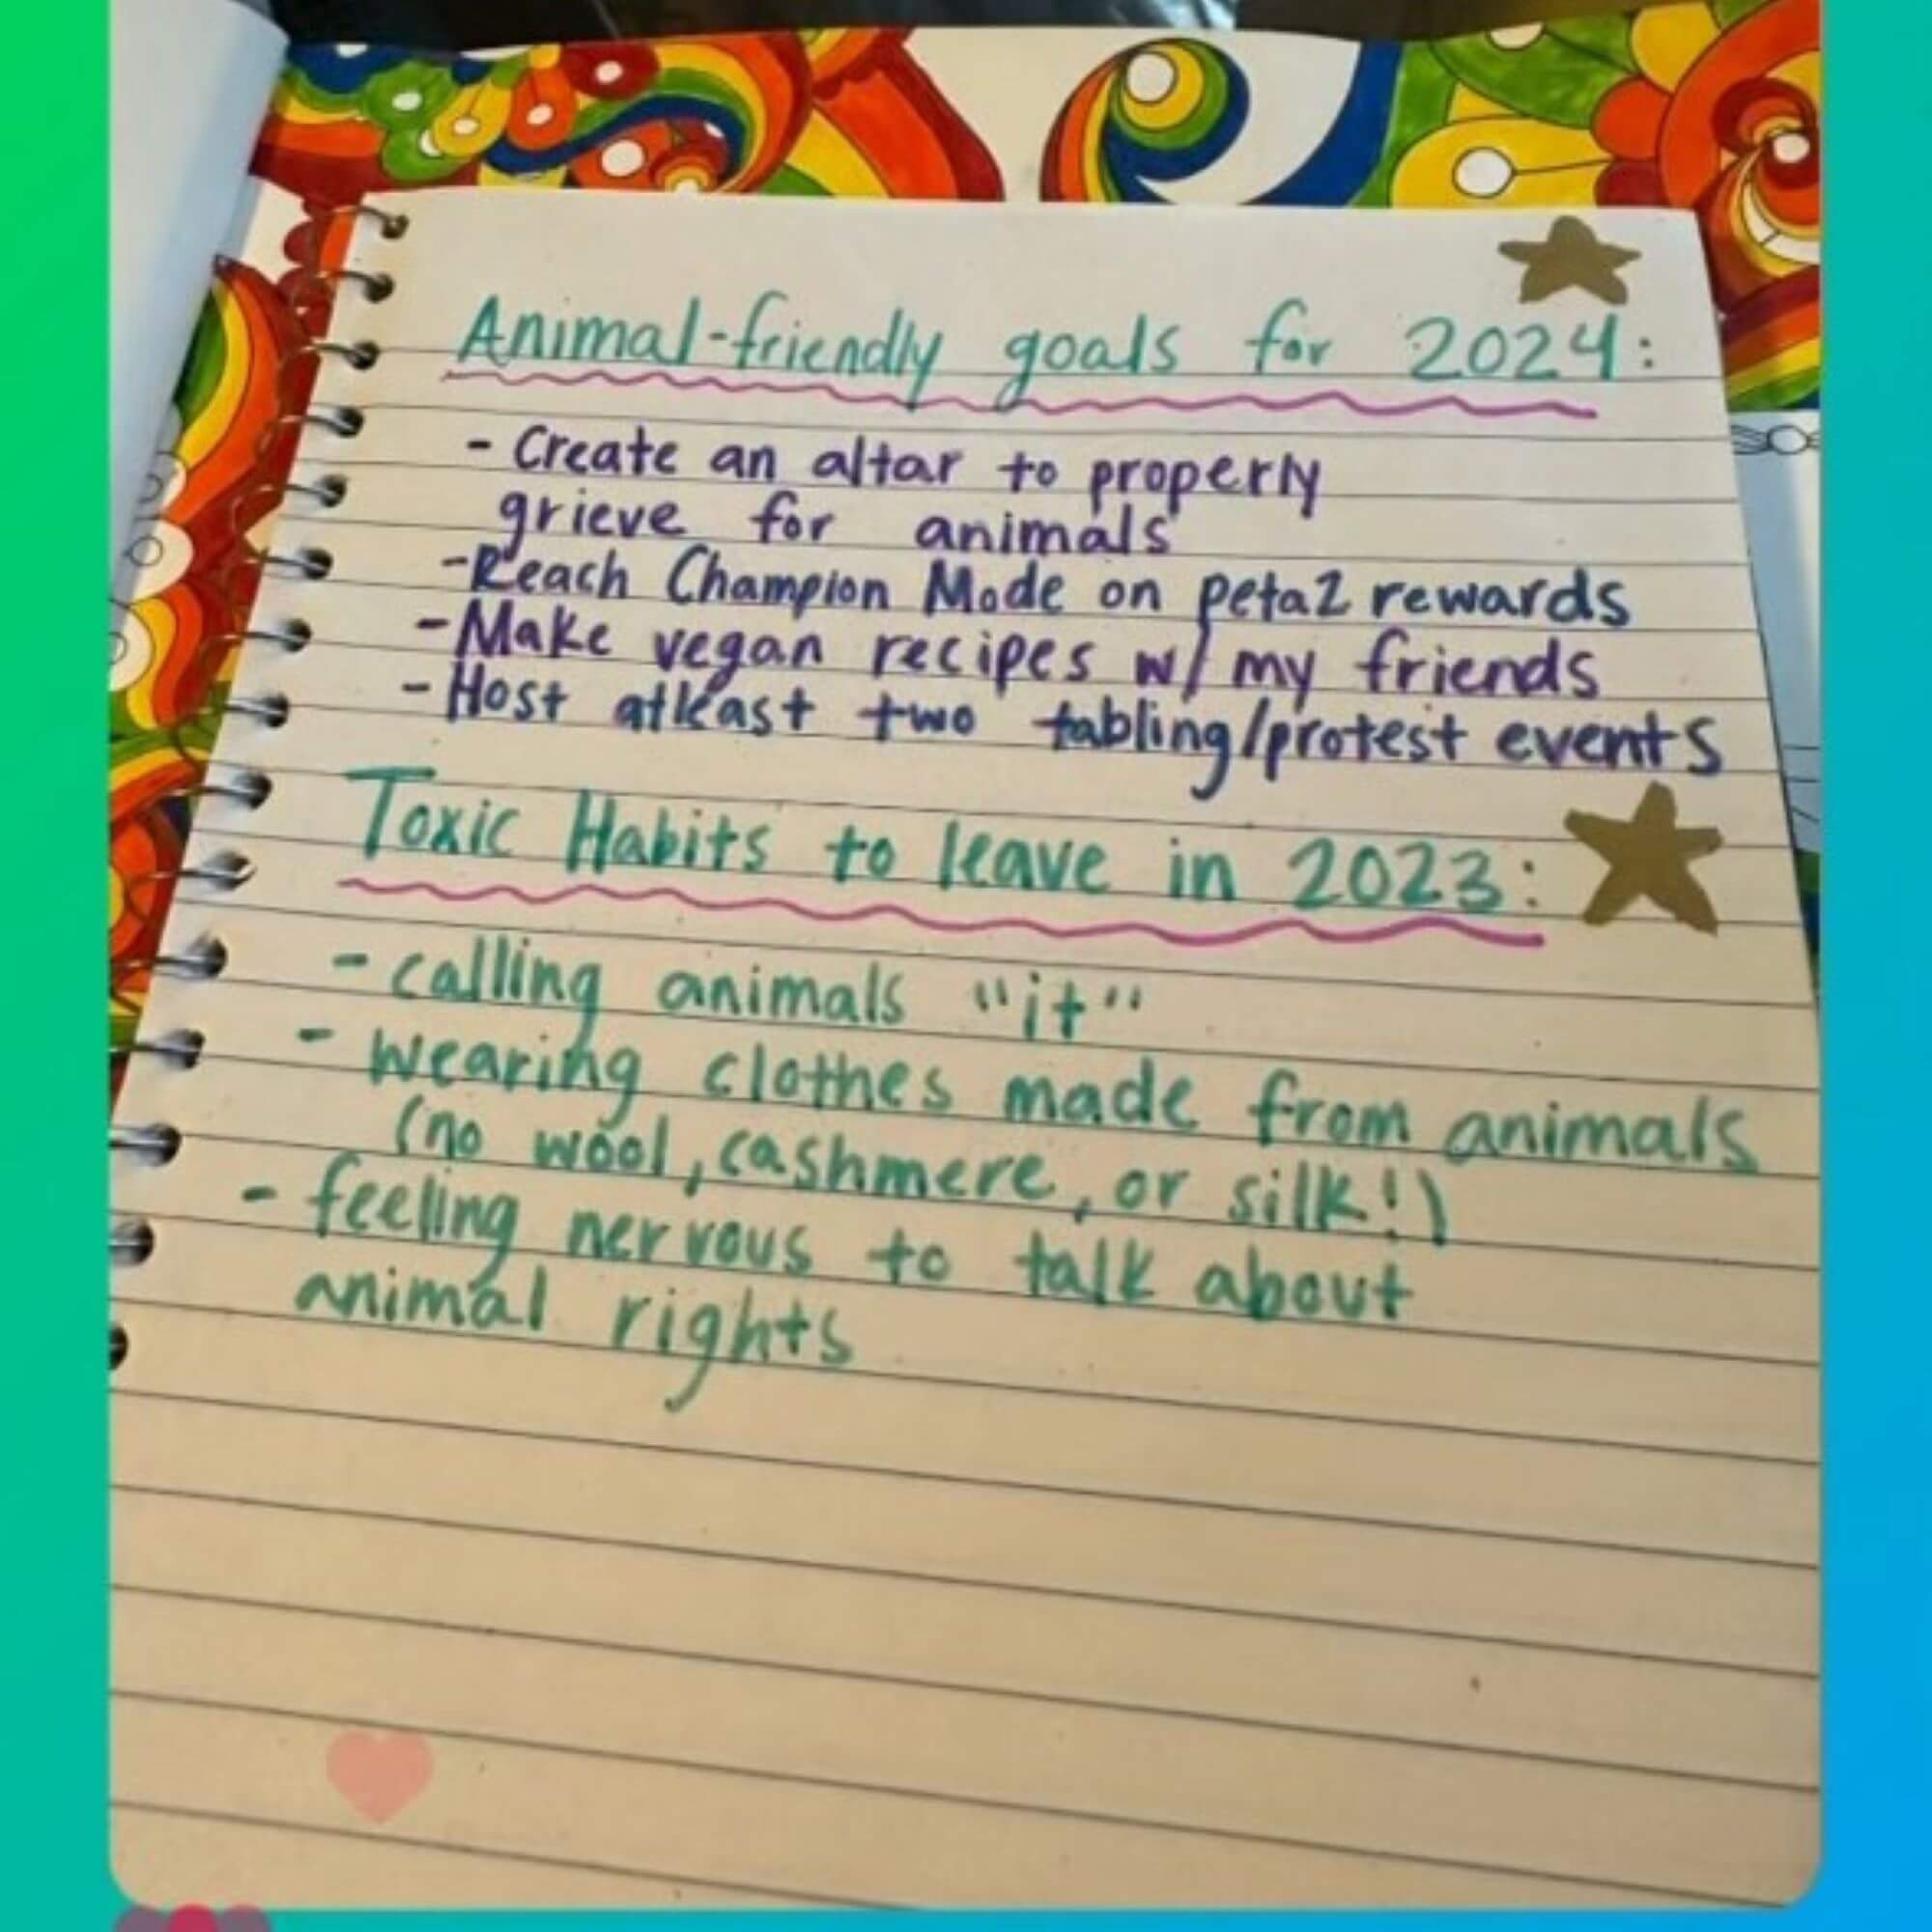 Animal-friendly goals for 2024:
- Create an altar to properly
grieve for animals
- Reach Champion Mode on peta2 rewards
- Make vegan recipes w/ my friends
- Host atleast two tabling/protest events
Toxic Habits to leave in 2023:
- calling animals "it"
- wearing clothes made from animals
(no wool, cashmere, or silk!)
- feeling nervous to talk about
animal rights